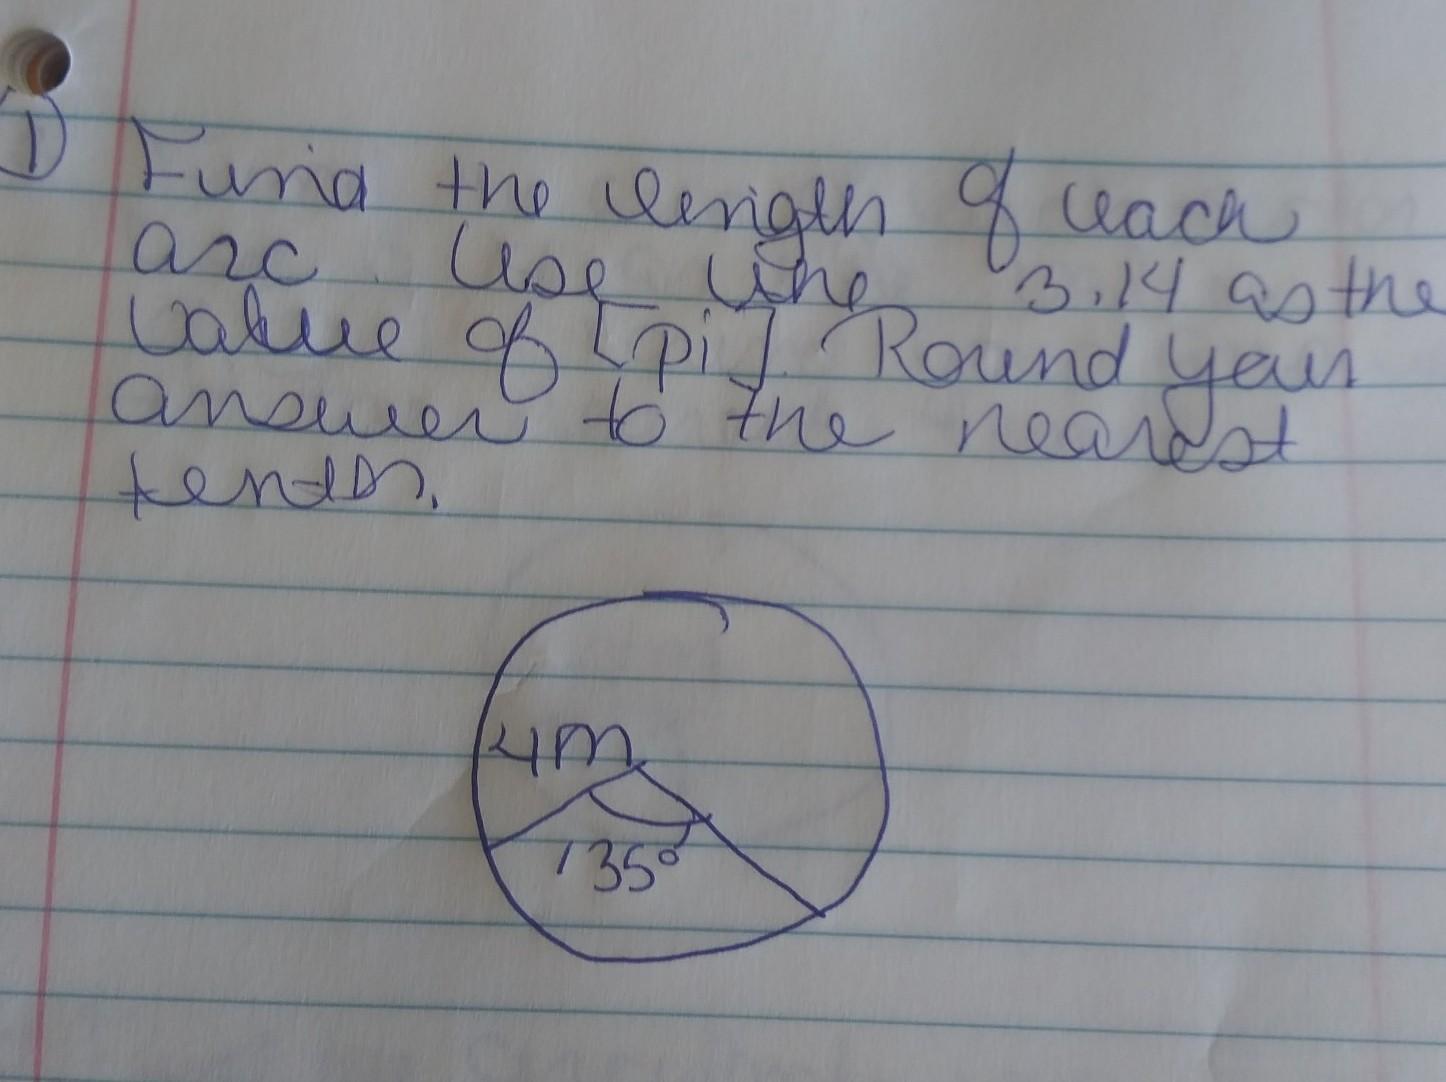 1 Find the length of each
arc. Use the 3.14 as the
value of [pi]. Round your
answer to the nearest
tenth.
4m
135°